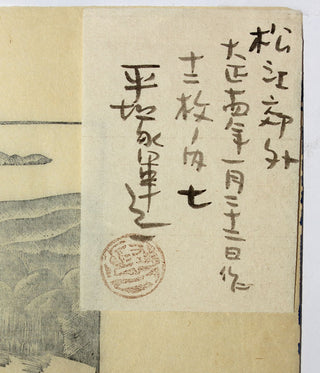 松江郊外
大正十四年一月二十二日作
十二枚ノ内 七
平塚運一